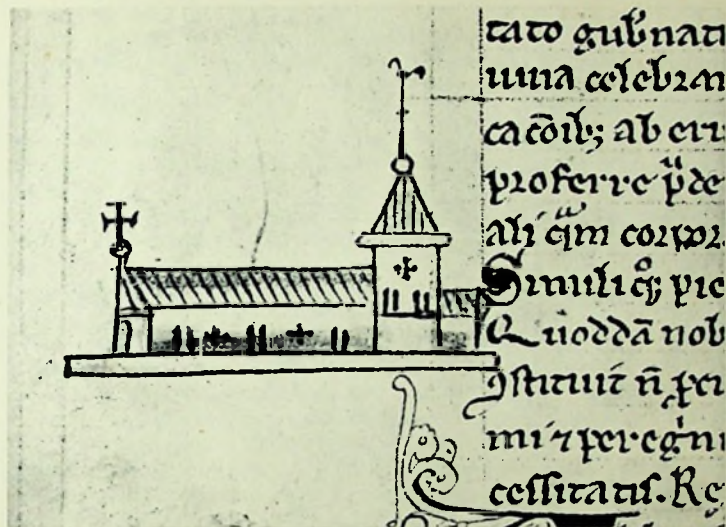 tato gub̄nati
uina celebran
ca cōib; ab eri
proferre p̄de
ali qͣm corpor
Simili qͦ; pie
Quoddā nob
ꝯstituit n̄
mi ⁊ peregͥni
cessitatis. Re